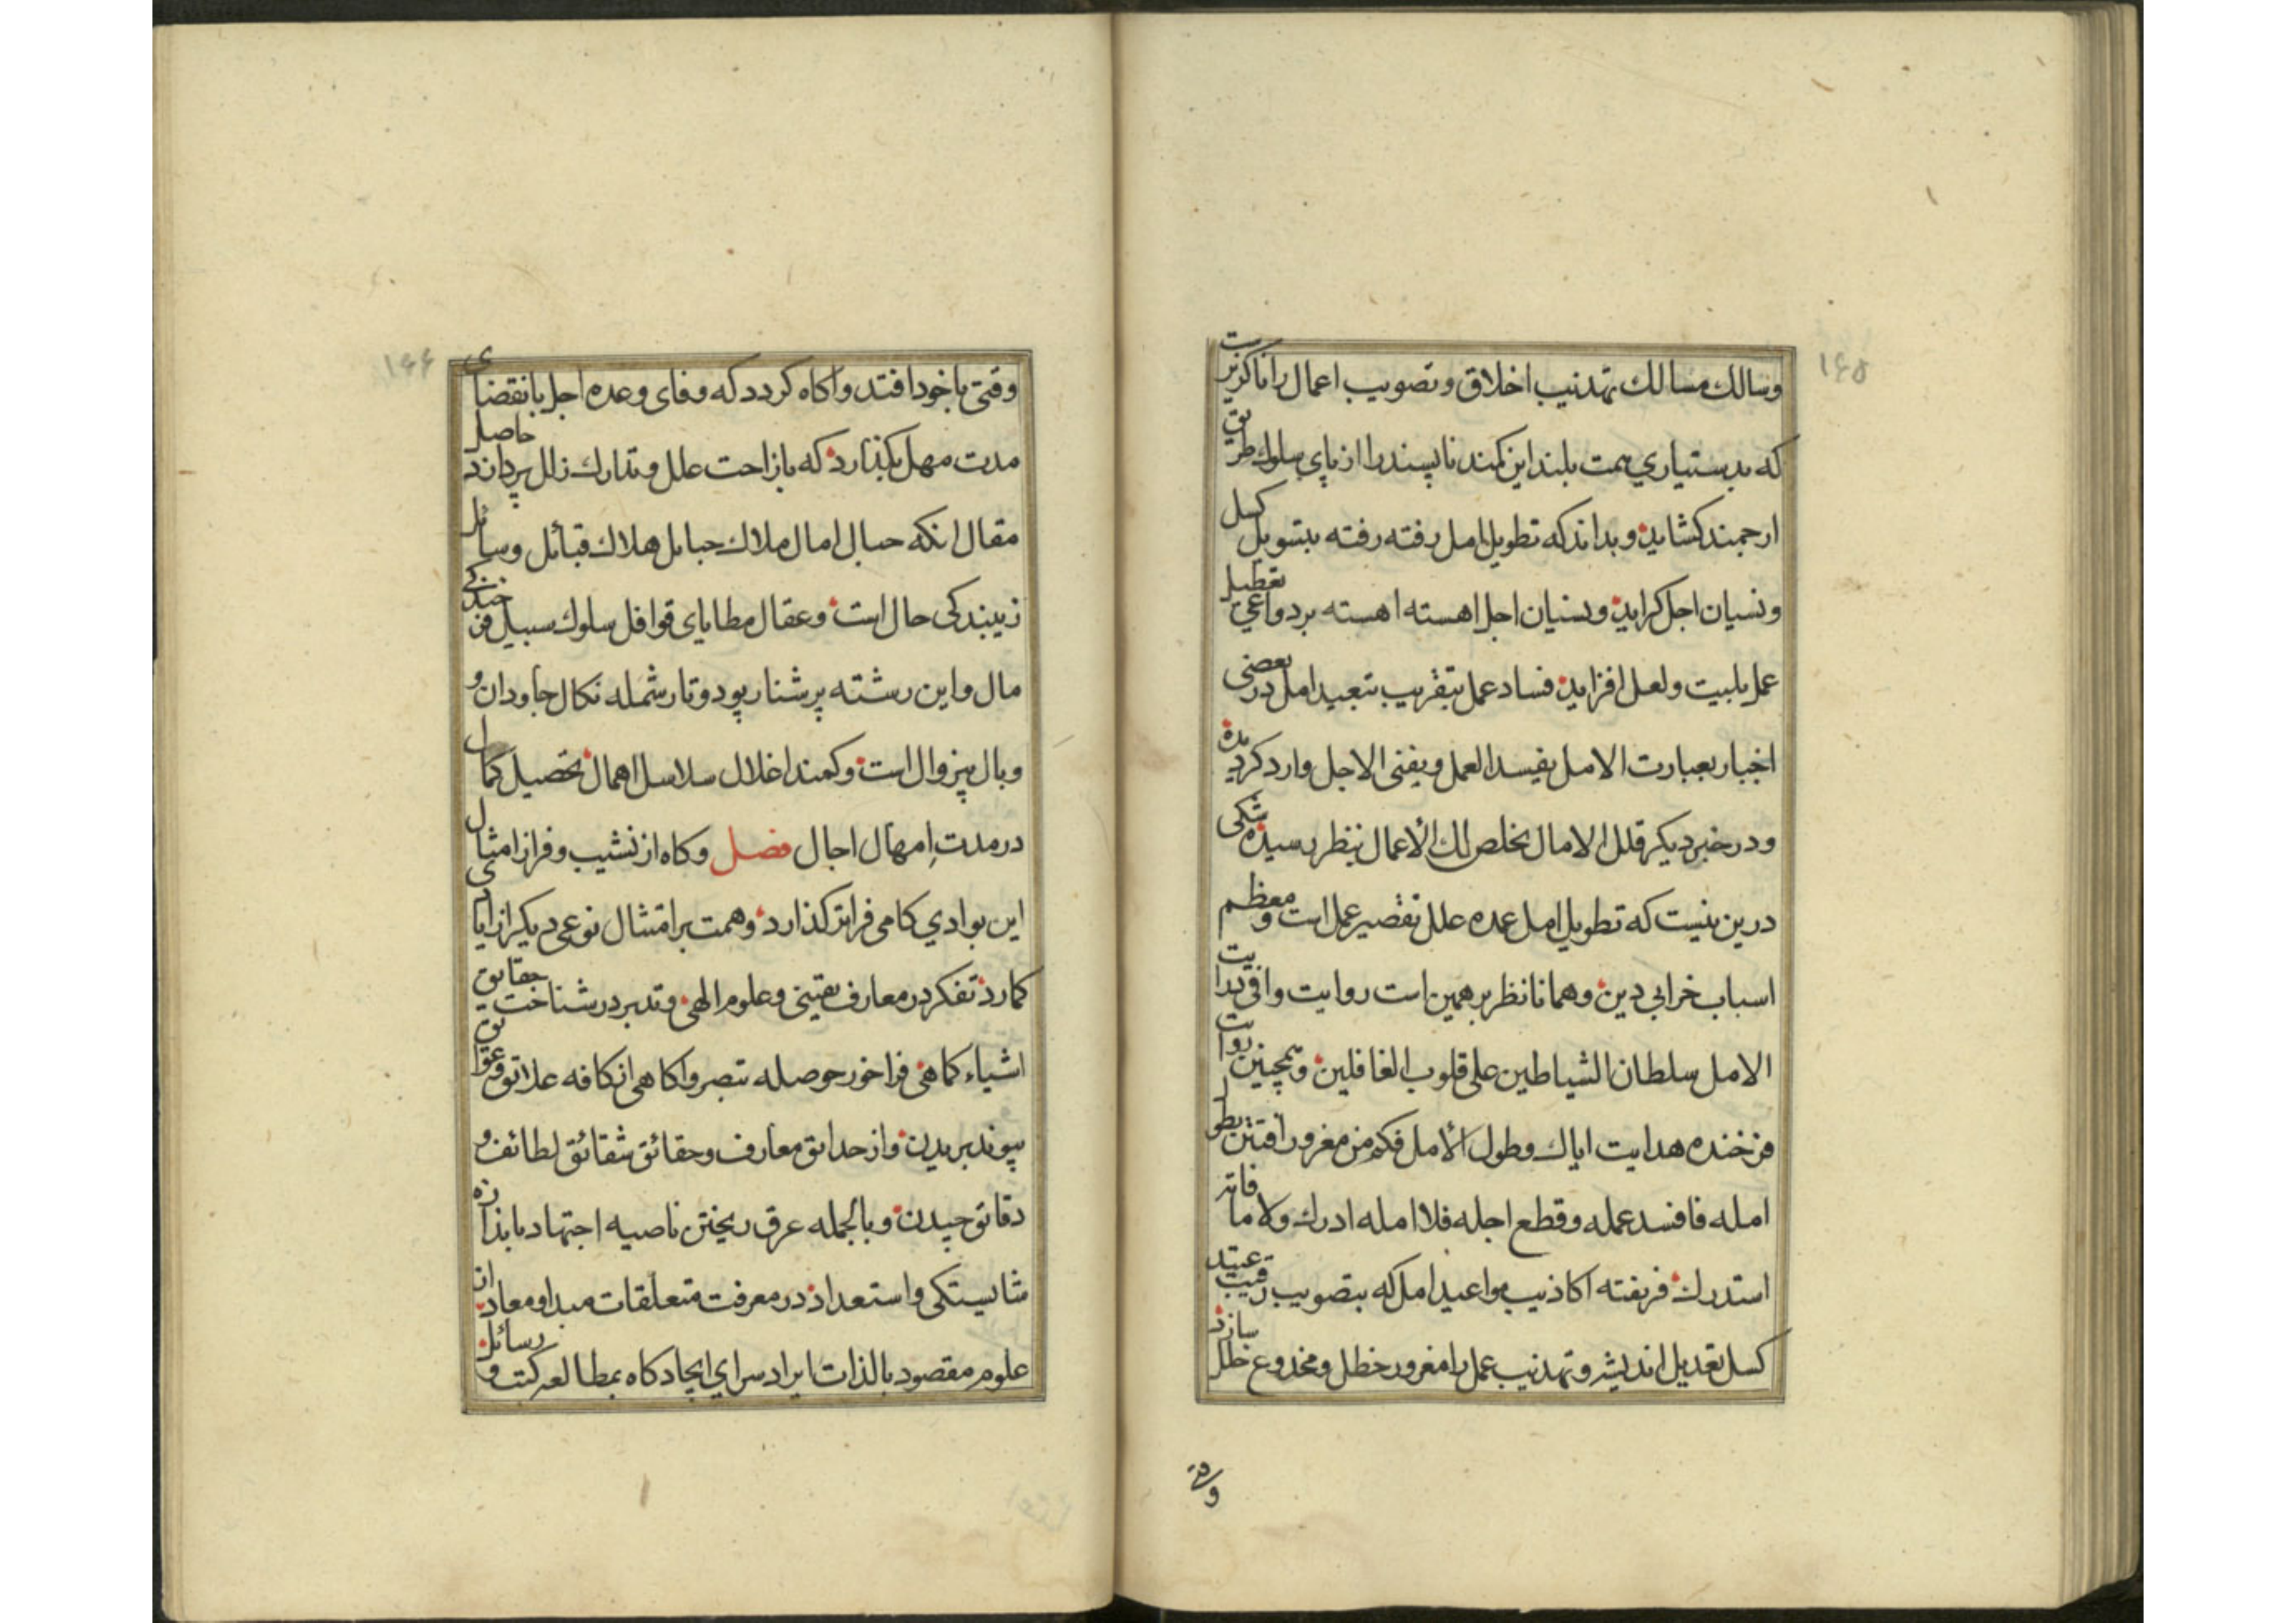 ۱۶۵
وسالك مسالك تهذیب اخلاق و تصویب اعمال را ناکزیرست
که بدستیاري همت بلند این کمند ناپسند را از پای سلوك طریق
ارجمند کشاید و بداند که تطویل امل رفته رفته بتسویل کسل
ونسیان اجل کراید و نسیان اجل اهسته اهسته بردواعي تعطیل
عمل بلیت ولعل افزاید فساد عمل بتقریب تبعید امل در بعضی
اخبار بعبارت الامل یفسد العمل ویفنی الاجل وارد کردیده
ودر خبر دیکر قلل الامال تخلص لك الأعمال بنظر رسیده شکی
درین نیست که تطویل امل عمده علل تقصیر عمل است و معظم
اسباب خرابي دین و همانا نظر بر همین است روایت وافی هدایت
الامل سلطان الشیاطین علی قلوب الغافلین و همچنین روایت
فرخنده هدایت ایاك وطول الأمل فکم من مغرور افتتن بطول
امله فافسد عمله وقطع اجله فلا امله ادرك ولا ما فاته
استدرك فریفته اکاذیب مواعید امل که بتصویب رقیب عتید
کسل تعدیل اندیشه و تهذیب عمل را مغرور خطل و مخدوع خلل سازد
وقتی
۱۶۶
وقتی باخود افتد و اکاه کردد که وفای وعده اجل بانقضای
مدت مهل نکذارد که بازاحت علل وتدارك زلل پردازد حاصل
مقال انکه حبال امال ملاك حبایل هلاك قبائل وسائل
زیبندکی حال است وعقال مطایای قوافل سلوك سبیل فرخندکی
مال و این رشته پرشنار پود و تار شمله نکال جاودان و
وبال بیزوال است و کمند اغلال سلاسل اهمال تحصیل کمال
در مدت امهال اجال فصل وکاه از نشیب و فراز امثال
این بوادي کامی فراتر کذارد و همت بر امتثال نوعی دیکر از ایام
کمارد تفکر در معارف یقینی وعلوم الهی وتدبر در شناخت حقایق
اشیاء کماهی فراخور حوصله تبصر و اکاهی از کافه علائق وعوایق
پیوند بریدن و از حدایق معارف وحقائق شقائق لطائف و
دقایق چیدن و بالجمله عرق ریختن ناصیه اجتهاد باندازه
شایستکی و استعداد در معرفت متعلقات مبدا و معاد از
علوم مقصود بالذات ایراد سراي ایجاد کاه بمطالعه کتب و رسائل